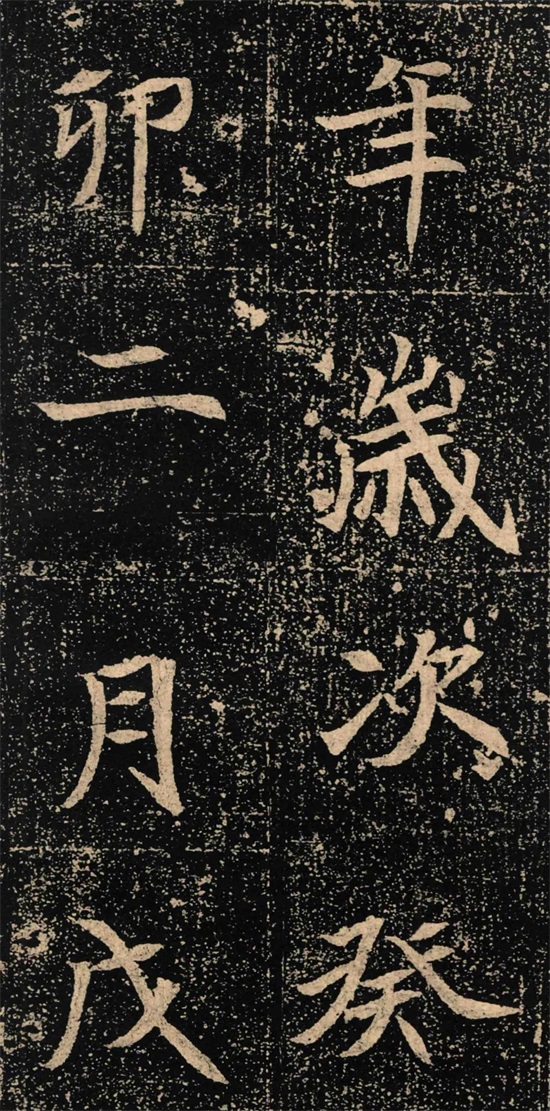 年歲次癸
卯二月戊